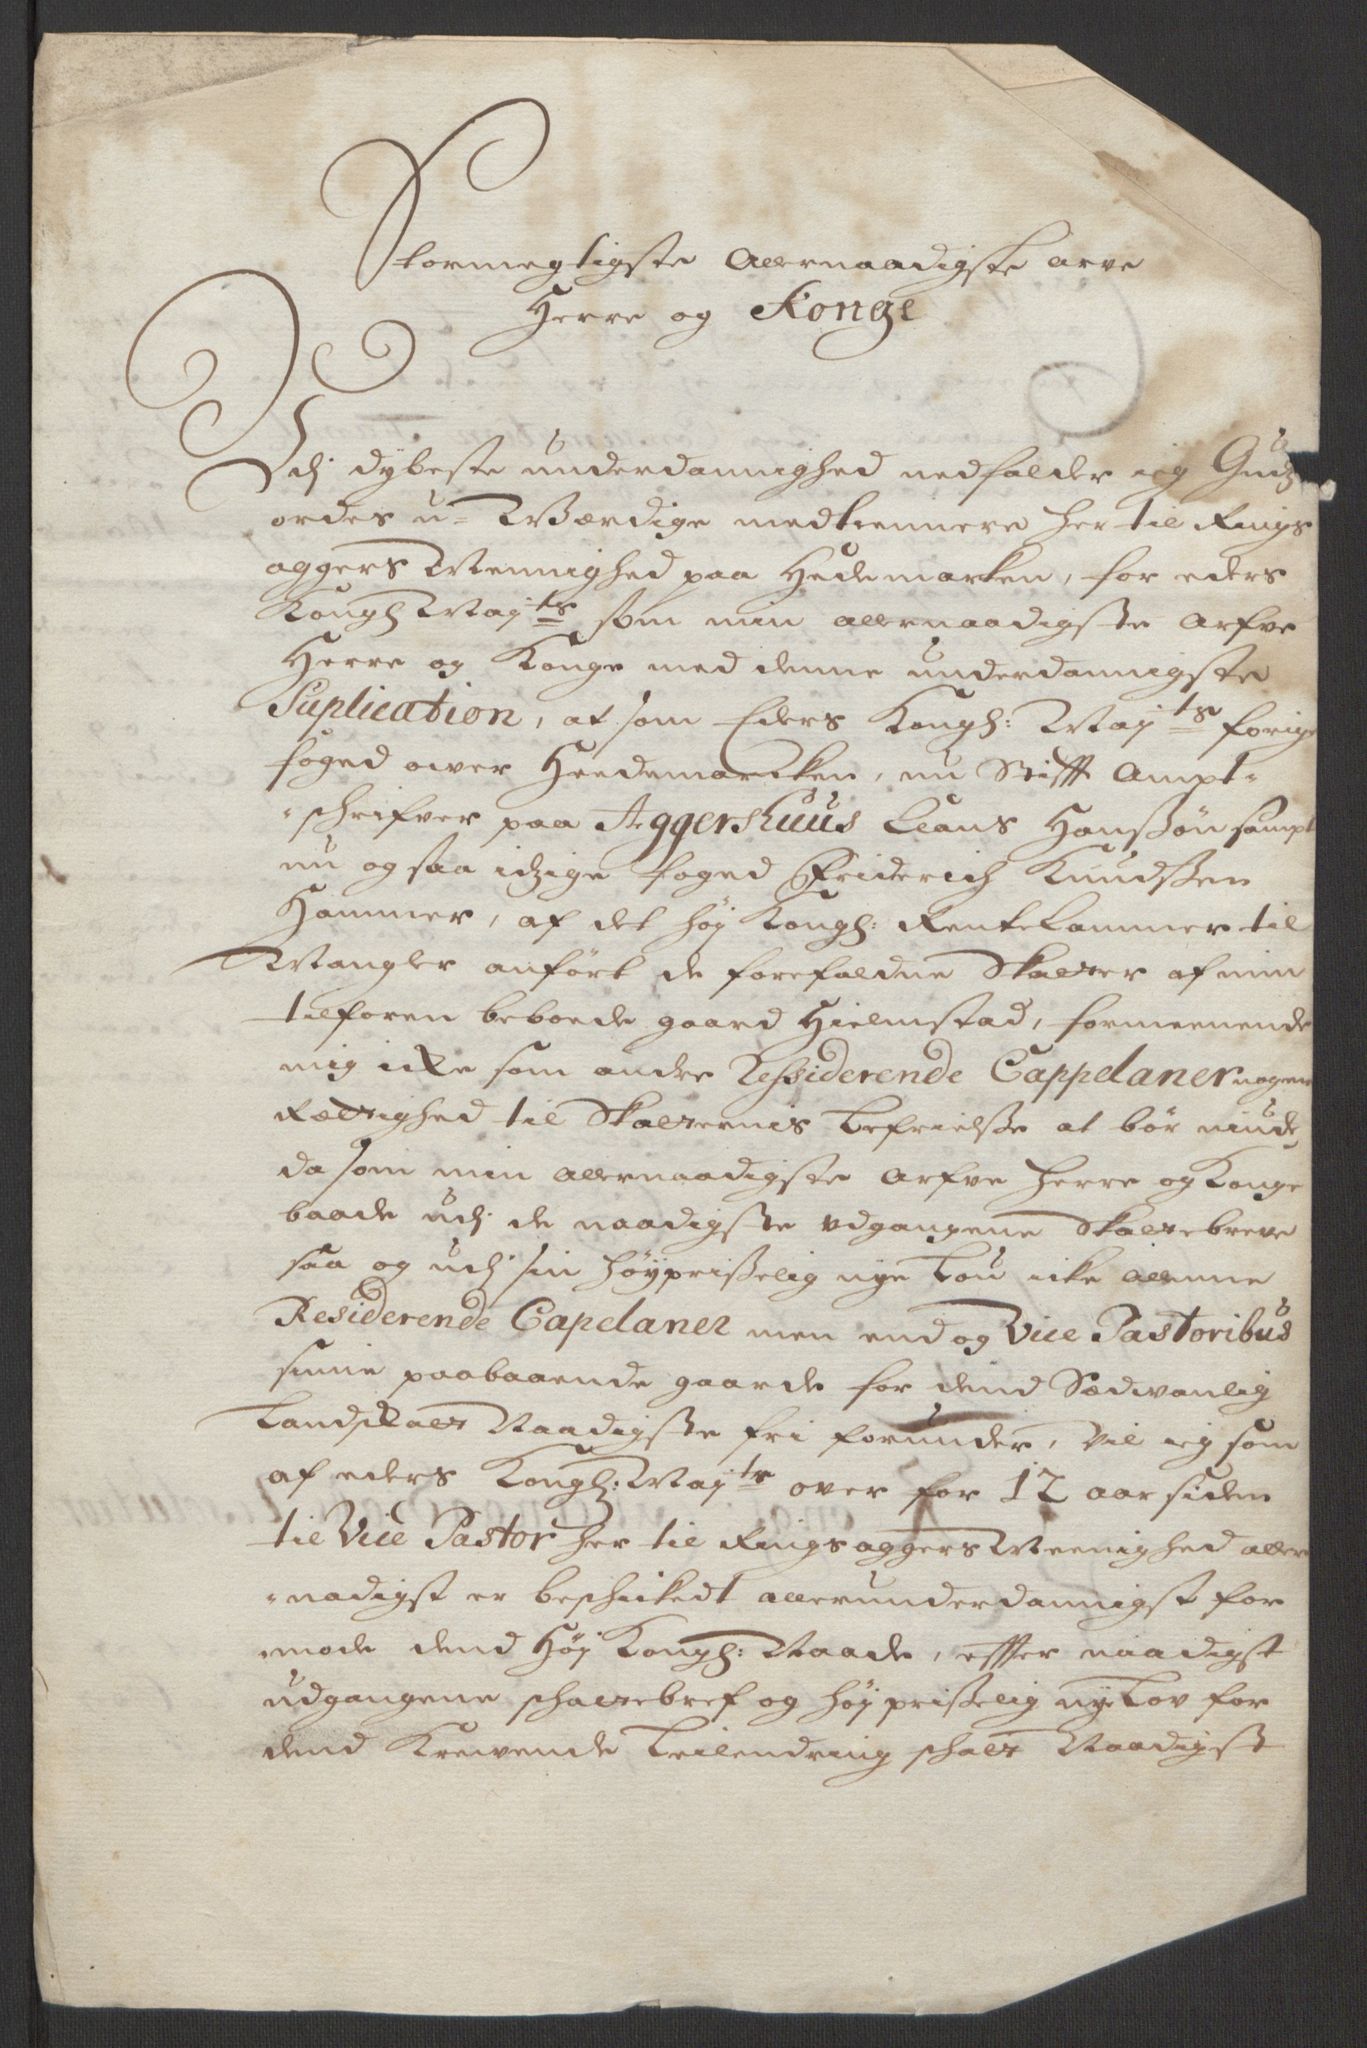 Stormegtigste Allernaadigste arve
Herre og Konge
Udj dybeste underdannighed nedfalder ieg Gudz
ordes u= Værdige medtiennere her til Rings
aggers Mennighed paa Hedemarken, for eders
Kongl Maÿts som min allernaadigste Arfve
Herre og Konge med denne underdannigste
Suplication, at som Eders Kongl: Maÿts forige
foged over Heedemarcken, nu Stifft Ampt-
-schrifver paa Aggershuus Claus Hanssøn sampt
nu og saa idzige foged Friderich Knudssen
Hammer, af det høj Kongl: Rentekammer til
Mangler anført de forefaldne Skatter af min
tilforen beboede gaard Hielmstad, formeenende
mig icke som andre Ressiderende Cappelaner nogen
Rettighed til Skatternis befrielsse at bør niude,
da som min allernaadigste Arfve herre og Konge
baade udj de naadigste udgangene Skattebreve
saa og udj sin høyprisselig nye Lou icke allenne
Residerende Capelaner men end og Vice Pastoribus
sinne paaboende gaarde for dend Sædvanlig
Landskatt Naadigste fri forunder, Vil ieg som
af eders Kongl: Maÿtr over for 12 aar siden
til Vice Pastor her til Ringsaggers Meenighed aller
-nadigst er beschicket allerunderdannigst for
mode dend Høj Kongl: Naade, effter naadigst
udgangene schattebref og høj prisselig nye Lov for
dend Krevende Leilendring schatt Naadigst